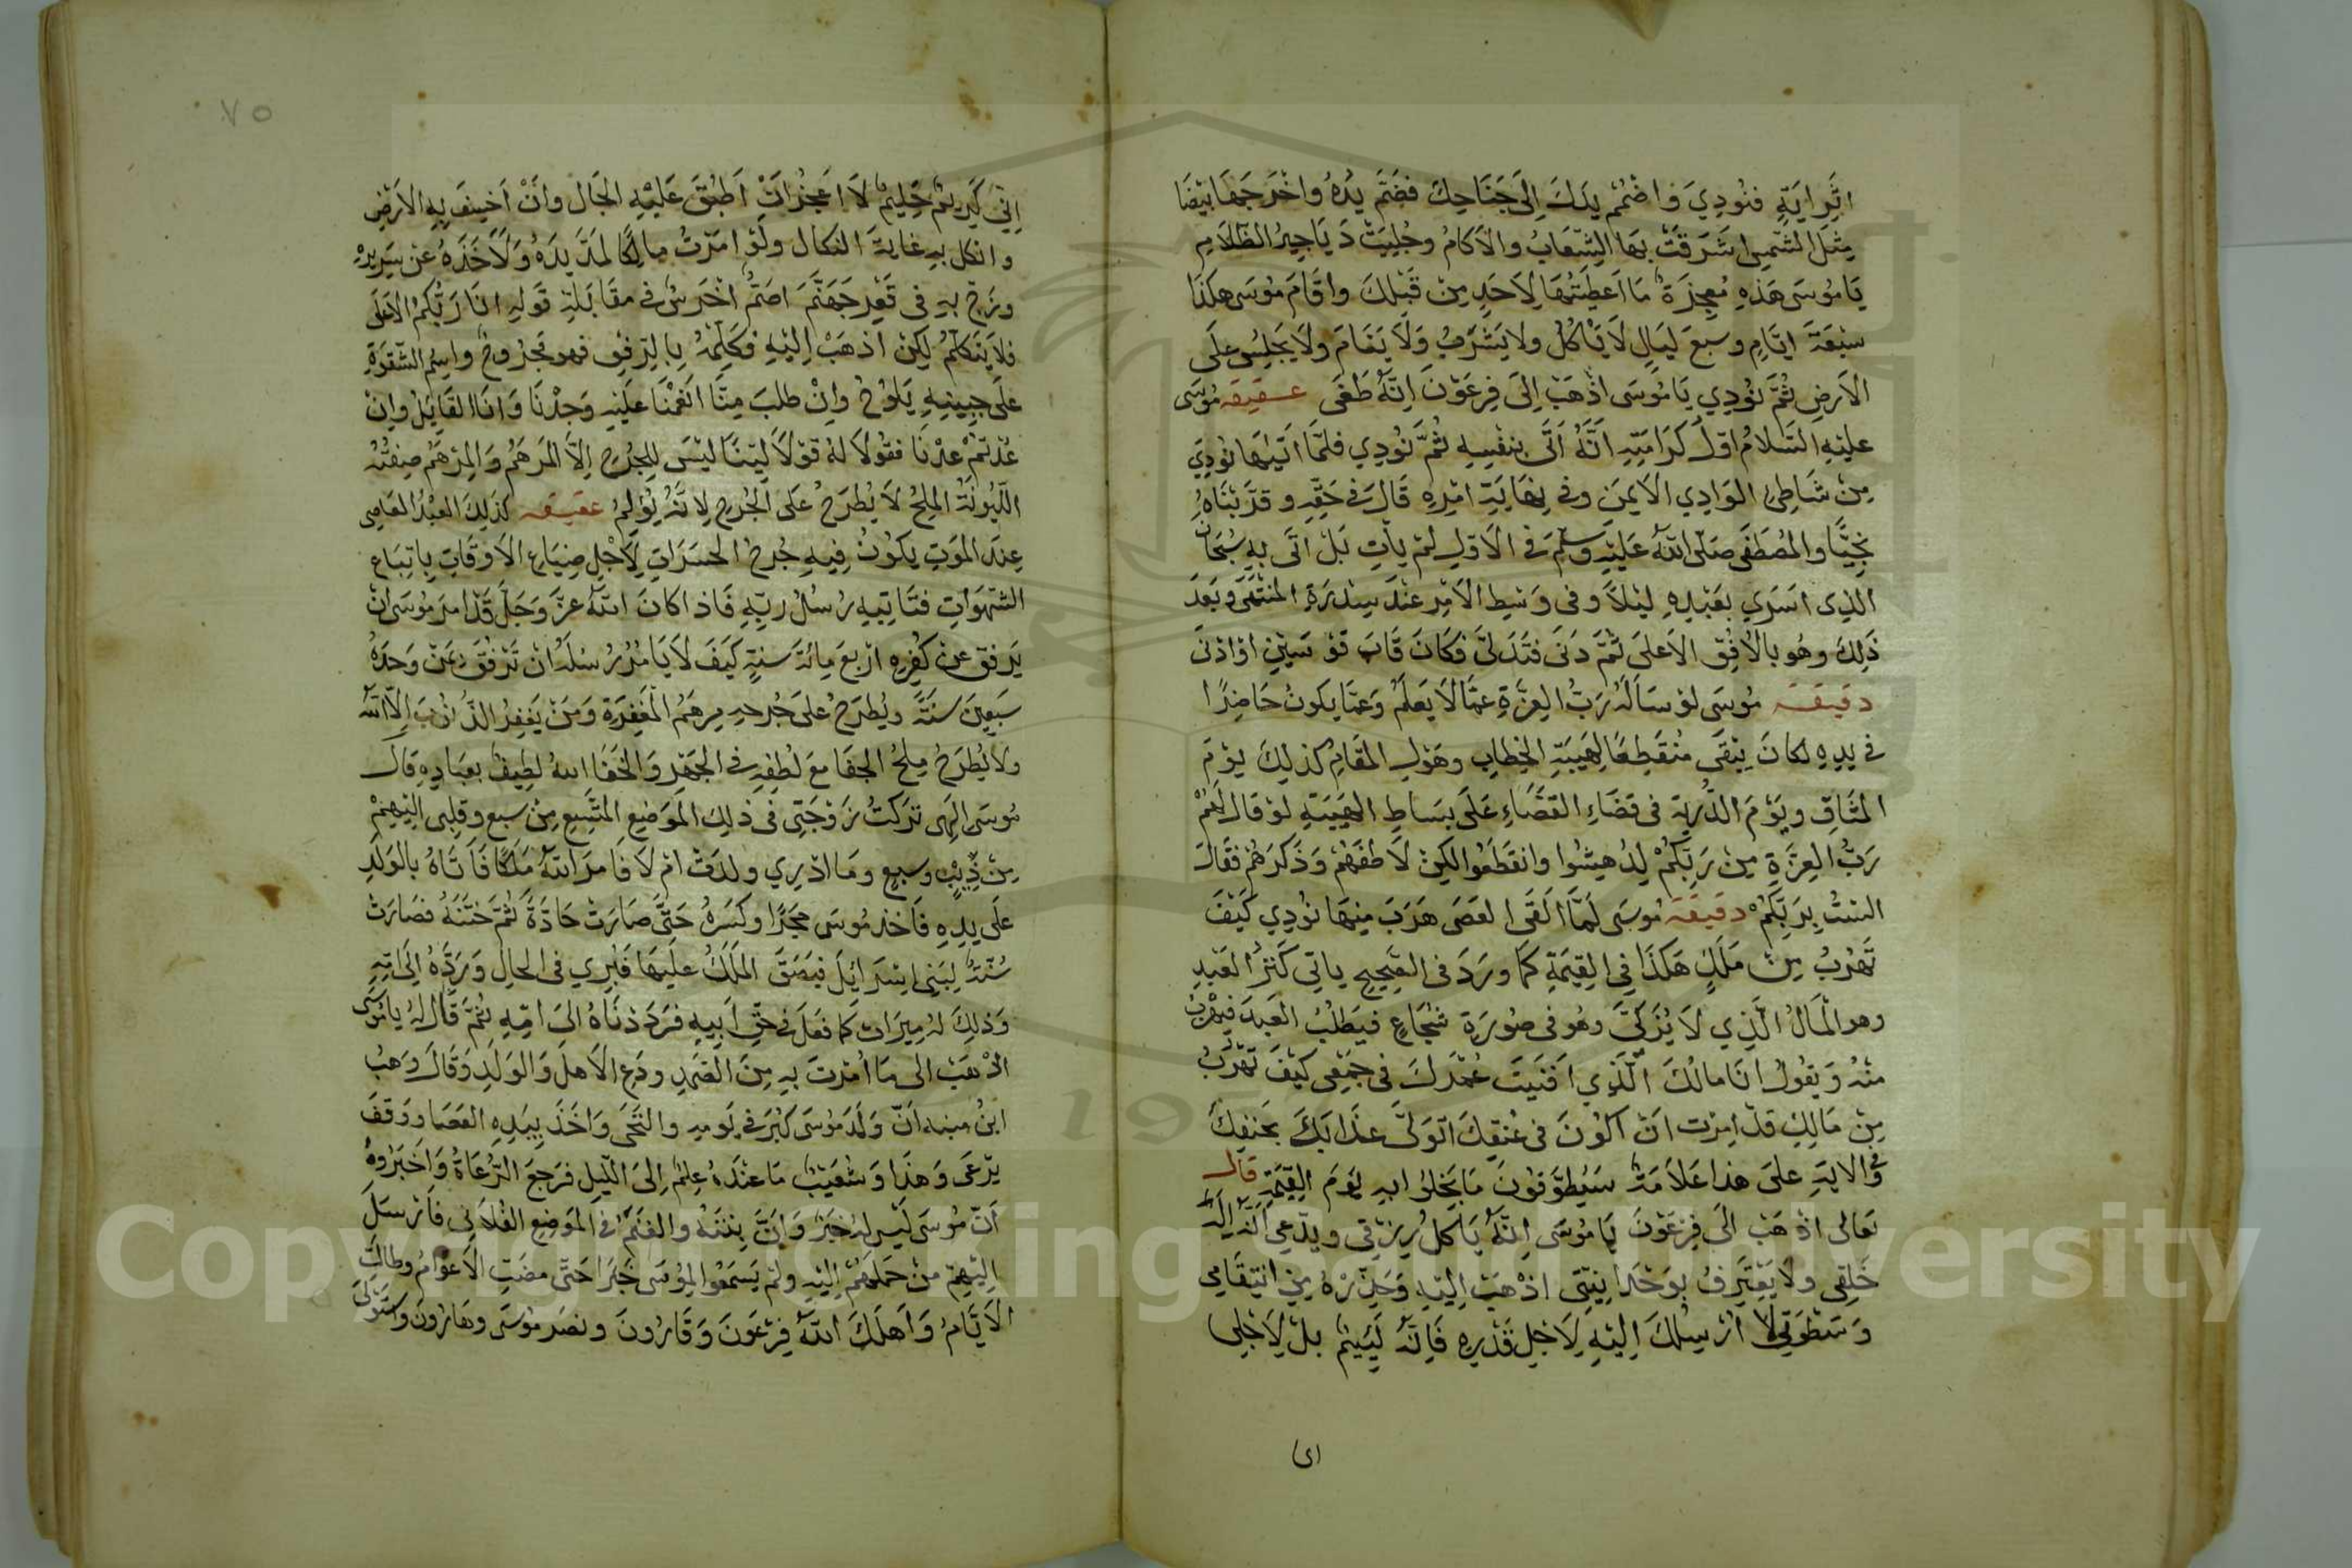 اثر اية فنودي واضمم يدك الى جناحك فضم يده واخرجها بيضا
مثل الشمس اشرقت بها الشعاب والآكام وجليت دياجير الظلام
يا موسى هذه معجزة ما اعطيتها لاحد من قبلك واقام موسى هكذا
سبعة ايام وسبع ليال لا ياكل ولا يشرب ولا ينام ولا يجلس على
الارض ثم نودي يا موسى اذهب الى فرعون انه طغى عقيقة موسى
عليه السلام اول كراميه انه اتى بنفسه ثم نودي فلما اتيها نودي
من شاطئ الوادي الايمن وفي نهاية امره قال في حقه وقربناه
نجيا والمصطفى صلى الله عليه وسلم في الاول لم يات بل اتى به سبحان
الذي اسرى بعبده ليلا وفي وسط الامر عند سدرة المنتهى وبعد
ذلك وهو بالافق الاعلى ثم دنى فتدلى فكان قاب قوسين او ادنى
دقيقة موسى لو ساله رب العزة عما لا يعلم وعما يكون حاضرا
في يده لكان يبقى منقطعا لهيبة الخطاب وهول المقام كذلك يوم
الميثاق ويوم الذرية في فضاء القضاء على بساط الهيبة لو قال لهم
رب العزة من ربكم لدهشوا وانقطعوا لكن لاطفهم وذكرهم فقال
الست بربكم دقيقة موسى لما القى العصى هرب منها نودي كيف
تهرب من ملك هكذا في القيمة كما ورد في الصحيح ياتي كنز العبد
وهو المال الذي لا يزكى وهو في صورة شجاع فيطلب العبد فيهرب
منه ويقول انا مالك الذي افنيت عمرك في جمعى كيف تهرب
من مالك قد امرت ان اكون في عنقك اتولى عذابك بحنفك
والاية على هذا علامة سيطوقون ما بخلوا به يوم القيمة قال
تعالى اذهب الى فرعون يا موسى انه ياكل رزقي ويدعي انه اله
خلقى ولا يعترف بوحدانيتى اذهب اليه وحذره من انتقامي
وسطوتي لا ارسلك اليه لاجل قدره فانه لئيم بل لاجلى
انى
اني كريم حليم لا اعجز ان اطبق عليه الجبال وان اخسف به الارض
وانكل به غاية النكال ولو امرت مالكا لمد يده ولاخذه عن سريره
وزج به في قعر جهنم اصم اخرس في مقابلة قوله انا ربكم الاعلى
فلا يتكلم لكن اذهب اليه فكلمه بالرفق فهو مجروح واسم الشقوة
على جبينه يلوح وان طلب منا انعمنا عليه وجدنا وانا القايل وان
عدتم عدنا فقولا له قولا لينا ليس للجرح الا المرهم والمرهم صفته
الليونة الملح لا يطرح على الجرح لانه يؤلم عقيقة كذلك العبد العاصى
عند الموت يكون فيه جرح الحسرات لاجل ضياع الاوقات باتباع
الشهوات فتاتيه رسل ربه فاذا كان الله عز وجل قد امر موسى ان
يرفق عن كفره اربع مائة سنة كيف لا يامر رسله ان ترفق بمن وحده
سبعين سنة ويطرح على جرحه مرهم المغفرة ومن يغفر الذنوب الا الله
ولا يطرح ملح الجفا مع لطفه في الجهر والخفا الله لطيف بعباده قال
موسى الهى تركت زوجتى في ذلك الموضع المتسع من سبع وقلبى اليهم
من ذيب وسبع وما ادري ولدت ام لا فامر الله ملكا فاتاه بالولد
على يده فاخذ موسى حجرا وكسره حتى صارت حادة ثم ختنه فصارت
سنة لبنى اسرايل فبصق الملك عليها فبري في الحال ورده الى امه
وذلك له ميراث كما فعل في حق ابيه فرددناه الى امه ثم قال له يا موسى
اذهب الى ما امرت به من الصمد ودع الاهل والولد وقال وهب
ابن منبه ان ولد موسى كبر في يومه والتحى واخذ بيده العصا ووقف
يرعى وهذا وشعيب ما عنده علم الى الليل فرجع الرعاة واخبروه
ان موسى ليس له خبر وان بنته والغنم في الموضع الفلاني فارسل
اليهم من حملهم اليه ولم يسمعوا لموسى خبرا حتى مضت الاعوام وطالت
الايام واهلك الله فرعون وقارون ونصر موسى وهارون واستولى
٧٥
Copyright © King Saud University
195